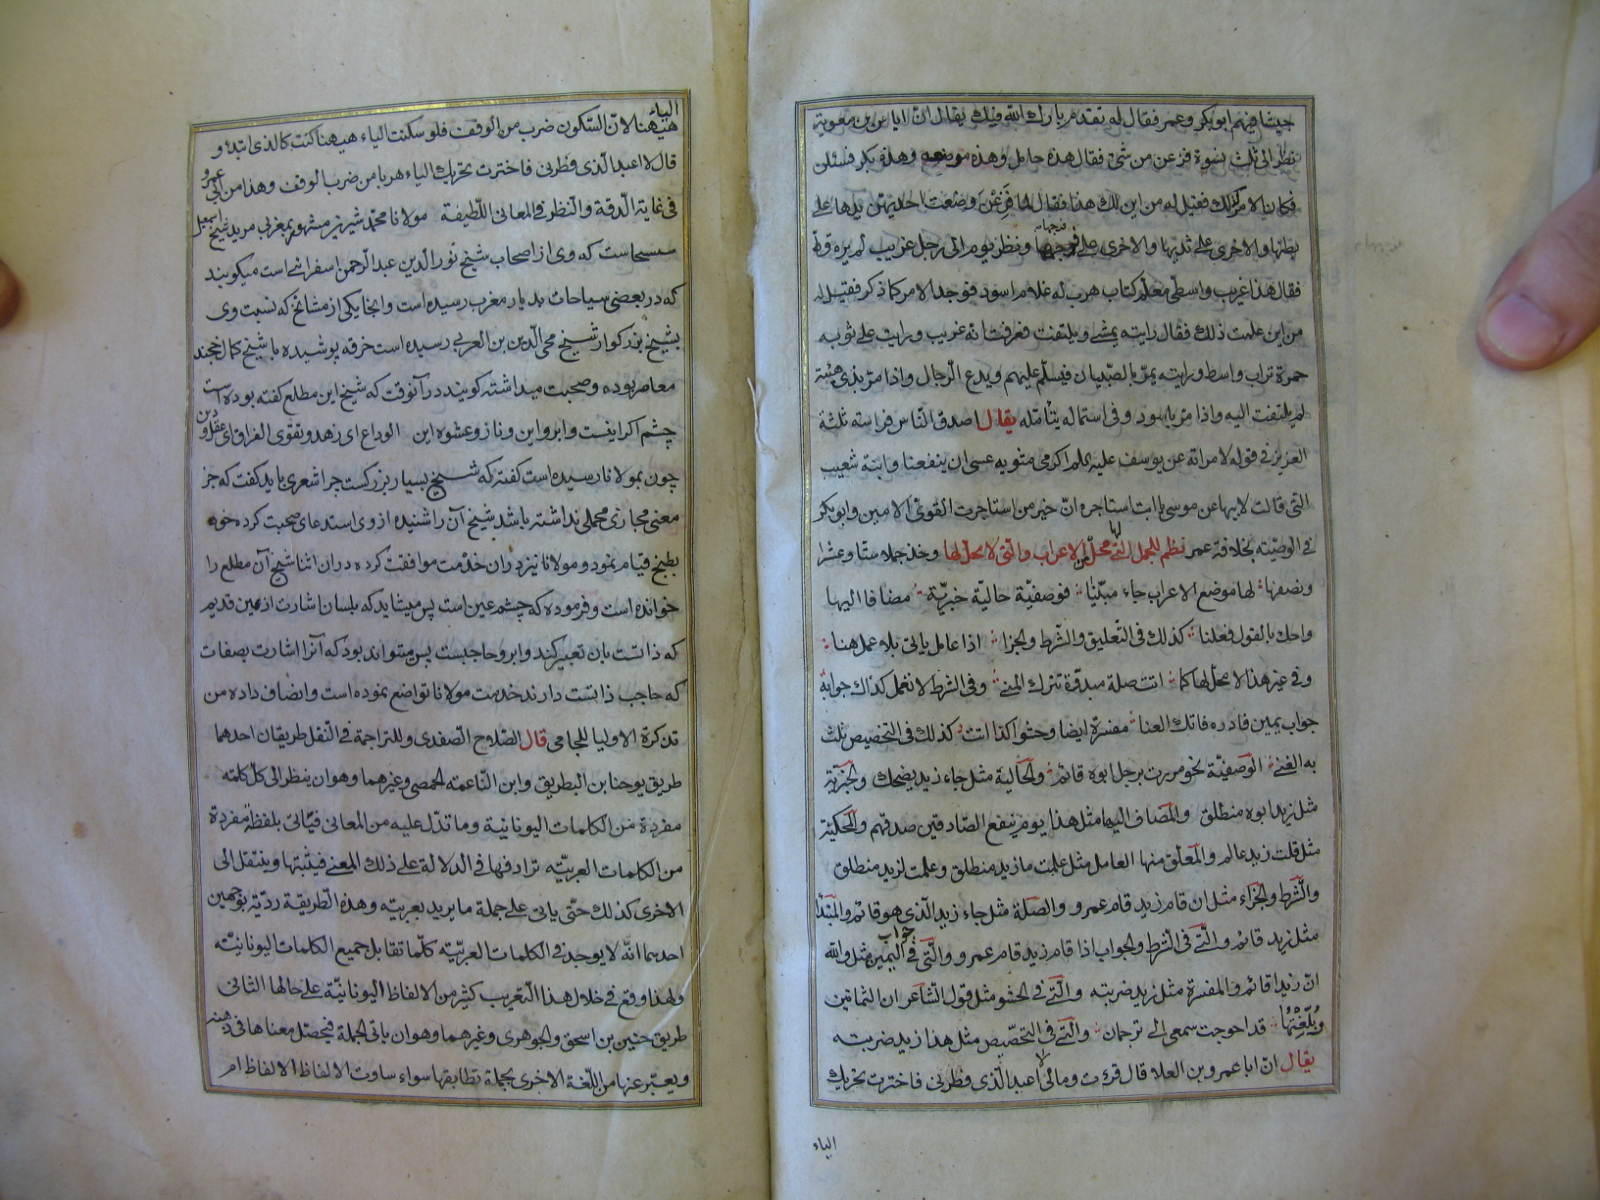 جيشا فيهم ابو بكر وعمر فقال له تقدم بارك الله فيك يقال ان اياس بن معوية
نظر الى ثلث نسوة فزعن من شئ فقال هذه حامل وهذه مرضعه وهذه بكر فسئلن
فكان الامر كذلك فقيل له من اين لك هذا فقال لما فزعن وضعت احديهن يدها على
بطنها والاخرى على ثديها والاخرى على فرجها ونظر يوما الى رجل غريب لم يره قط
فقال هذا غريب واسطى معلم كتاب هرب له غلام اسود فوجد الامر كما ذكر فقيل له
من اين علمت ذلك فقال رايته يمشى ويلتفت فعرفت انه غريب ورايت على ثوبه
حمرة تراب واسط ورايته يمر بالصبيان فيسلم عليهم ويدع الرجال واذا مر بذى هيئة
لم يلتفت اليه واذا مر باسود وفى اسماله يتأمله يقال اصدق الناس فراسة ثلثة
العزيز فى قوله لامراته عن يوسف عليه اكرمى مثويه عسى ان ينفعنا وابنة شعيب
التى قالت لابيها عن موسى ياابت استاجره ان خير من استاجرت القوى الامين وابو بكر
فى الوصية بخلافة عمر نظم للجمل التى لها محل من الاعراب والتى لا محل لها وخذ جملا ستا وعشرا
ونصفها لها موضع الاعراب جاء مبينا فوصفية حالية خبرية مضافا اليها
واحك بالقول فعلنا كذلك فى التعليق والشرط والجزا اذا عامل ياتى بلا عمل هنا
وفى غير هذا لا محل لها كما اتت صلة مبدوة تترك المنى وفى الشرط لا تعمل كذاك جوابه
جواب يمين فادره فاتك العنا مفسرة ايضا وحشوا كذا اتت كذلك فى التخصيص ثلث
به الغنى الوصفية نحو مررت برجل ابوه قائم والحالية مثل جاء زيد يضحك والخبرية
مثل زيد ابوه منطلق والمضاف اليها مثل هذا يوم ينفع الصادقين صدقهم والمحكية
مثل قلت زيد عالم والمعلق منها العامل مثل علمت ما زيد منطلق وعلمت لزيد منطلق
والشرط والجزاء مثل ان قام زيد قام عمرو والصلة مثل جاء زيد الذى هو قائم والمبتدأ
مثل زيد قائم والتى فى الشرط والجواب اذا قام زيد قام عمرو والتى فى جواب اليمين مثل والله
ان زيدا قائم والمفسرة مثل زيد ضربته والتى فى الحشو مثل قول الشاعر ان الثمانين
وبلغتها قد احوجت سمعى الى ترجمان والتى فى التخصيص مثل هذا زيد ضربته
يقال ان ابا عمرو بن العلا قال قرءت ومالى لا اعبد الذى فطرنى فاخترت تحريك
الياء
الياء
هيهنا لان السكون ضرب من الوقف فلو سكنت الياء هيهنا كنت كالذى ابتدأ و
قال لا اعبد الذى فطرنى فاخترت تحريك الياء هربا من ضرب الوقف وهذا من ابى عمرو
فى غاية الدقة والنظر فى المعانى اللطيفة مولانا محمد شيرين مشهور بمغربى مريد شيخ اسمعيل
سيسى است كه وى از اصحاب شيخ نور الدين عبد الرحمن اسفراينى است ميكويند
كه در بعضى سياحات بديار مغرب رسيده است وانجا يكى از مشائخ كه نسبت وى
بشيخ بزركوار شيخ محى الدين بن العربى رسيده است خرقه پوشيده با شيخ كمال خجند
معاصر بوده وصحبت ميداشته كويند در آنوقت كه شيخ اين مطلع كفته بوده است
چشم اكر اينست وابرو اين وناز وعشوه اين الوداع اى زهد وتقوى الفراق اى عقل ودين
چون بمولانا رسيده است كفته كه شيخ بسيار بزركست چرا شعرى بايد كفت كه جز
معنى مجازى محملى نداشته باشد شيخ آن را شنيده از وى استدعاى صحبت كرده خود
بطبخ قيام نمود و مولانا نيز در ان خدمت موافقت كرده در ان اثنا شيخ آن مطلع را
خوانده است وفرموده كه چشم عين است پس ميشايد كه بلسان اشارت از عين قديم
كه ذاتست بان تعبير كند وابرو حاجبست پس ميتواند بود كه آنرا اشارت بصفات
كه حاجب ذاتست دارند خدمت مولانا تواضع نموده است وانصاف داده من
تذكرة الاوليا للجامى قال الصلاح الصفدى وللتراجمة فى النقل طريقان احدهما
طريق يوحنا بن البطريق وابن الناعمة الحمصى وغيرهما وهو ان ينظر الى كل كلمة
مفردة من الكلمات اليونانية وما تدل عليه من المعانى فياتى بلفظة مفردة
من الكلمات العربية ترادفها فى الدلالة على ذلك المعنى فيثبتها وينتقل الى
الاخرى كذلك حتى ياتى على جملة ما يريد تعريبه وهذه الطريقة ردية بوجهين
احدهما انه لا يوجد فى الكلمات العربية كلما تقابل جميع الكلمات اليونانية
ولهذا وقع فى خلال هذا التعريب كثير من الالفاظ اليونانية على حالها الثانى
طريق حنين بن اسحق والجوهرى وغيرهما وهو ان ياتى الجملة فيحصل معناها فى ذهنه
ويعبر عنها من اللغة الاخرى بجملة تطابقها سواء ساوت الالفاظ الالفاظ ام